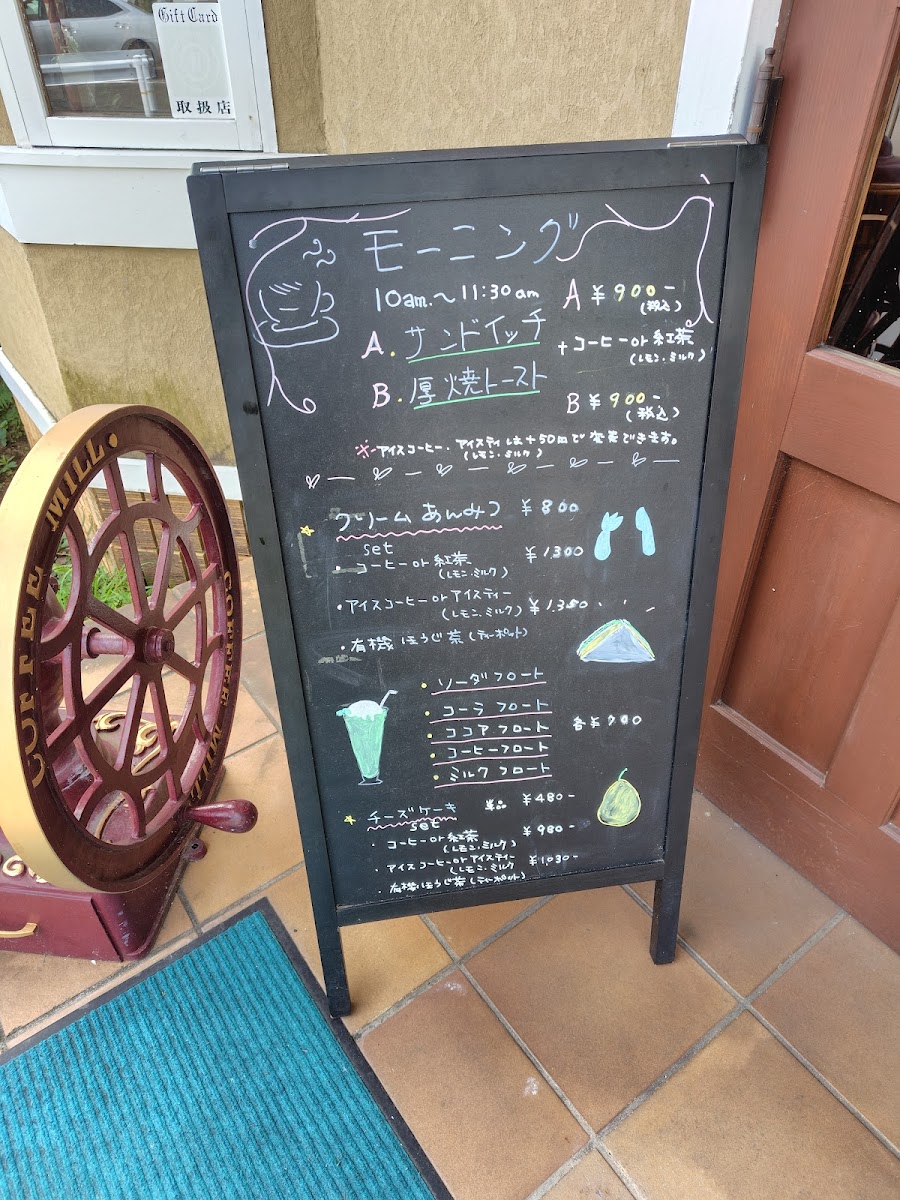 Gift Card
取扱店
COFFEE MILL
COFFEE MILL
モーニング
10am.〜11:30am
A ¥900-
(税込)
A. サンドイッチ
+コーヒーor紅茶
(レモン.ミルク)
B. 厚焼トースト
B ¥900-
(税込)
※アイスコーヒー.アイスティは+50円で変更できます。
(レモン.ミルク)
クリームあんみつ ¥800
set
・コーヒーor紅茶 ¥1300
(レモン.ミルク)
・アイスコーヒーorアイスティー
(レモン.ミルク) ¥1,350
・有機ほうじ茶(ティーポット)
・ソーダフロート
・コーラフロート
・ココアフロート 各¥700
・コーヒーフロート
・ミルクフロート
チーズケーキ 単品 ¥480-
set
・コーヒーor紅茶 ¥980-
(レモン.ミルク)
・アイスコーヒーorアイスティー ¥1,030-
(レモン.ミルク
・有機ほうじ茶(ティーポット)